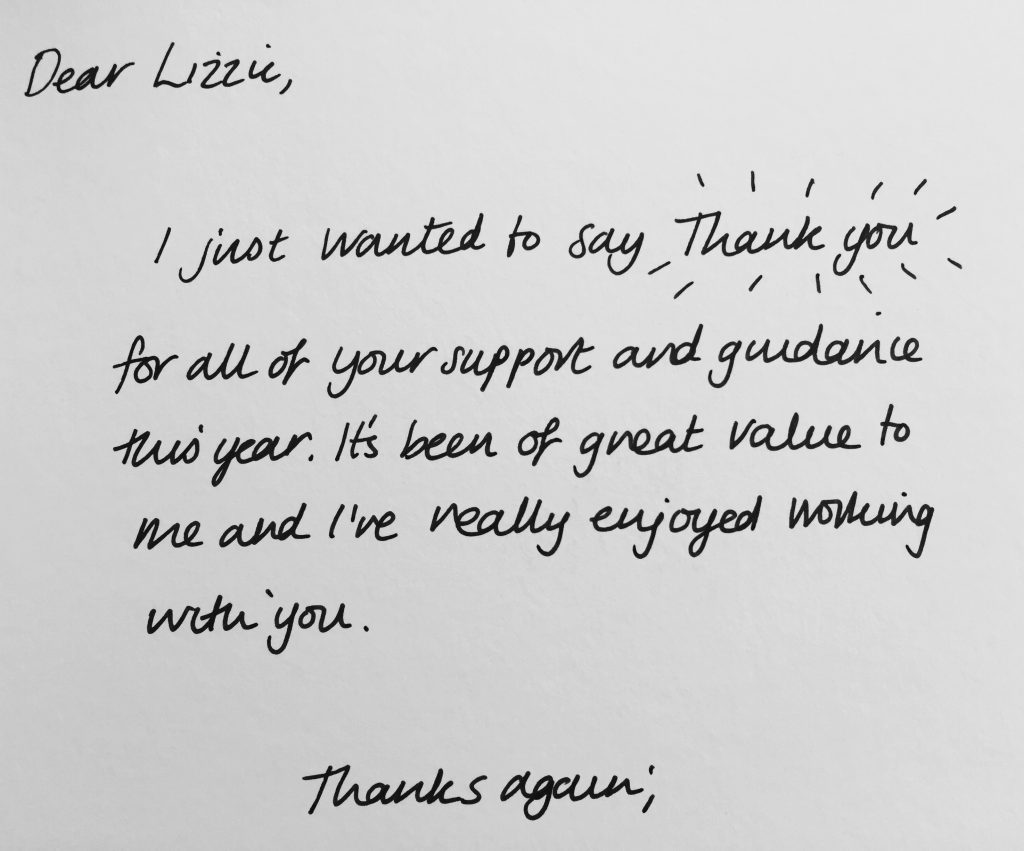 Dear Lizzie,
I just wanted to say Thank you
for all of your support and guidance
this year. It's been of great value to
me and I've really enjoyed working
with you.
Thanks again,